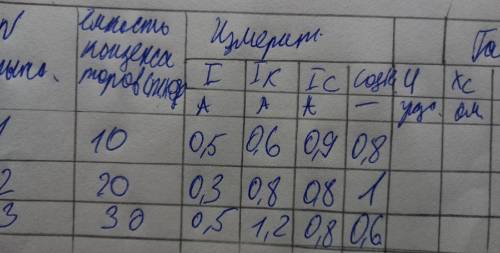 N Емкость Измерит. Га
опыта. конденса
торов (мкф) I Iк Iс cosφ U xc
А А А — ом
1 10 0,5 0,6 0,9 0,8
2 20 0,3 0,8 0,8 1
3 30 0,5 1,2 0,8 0,6